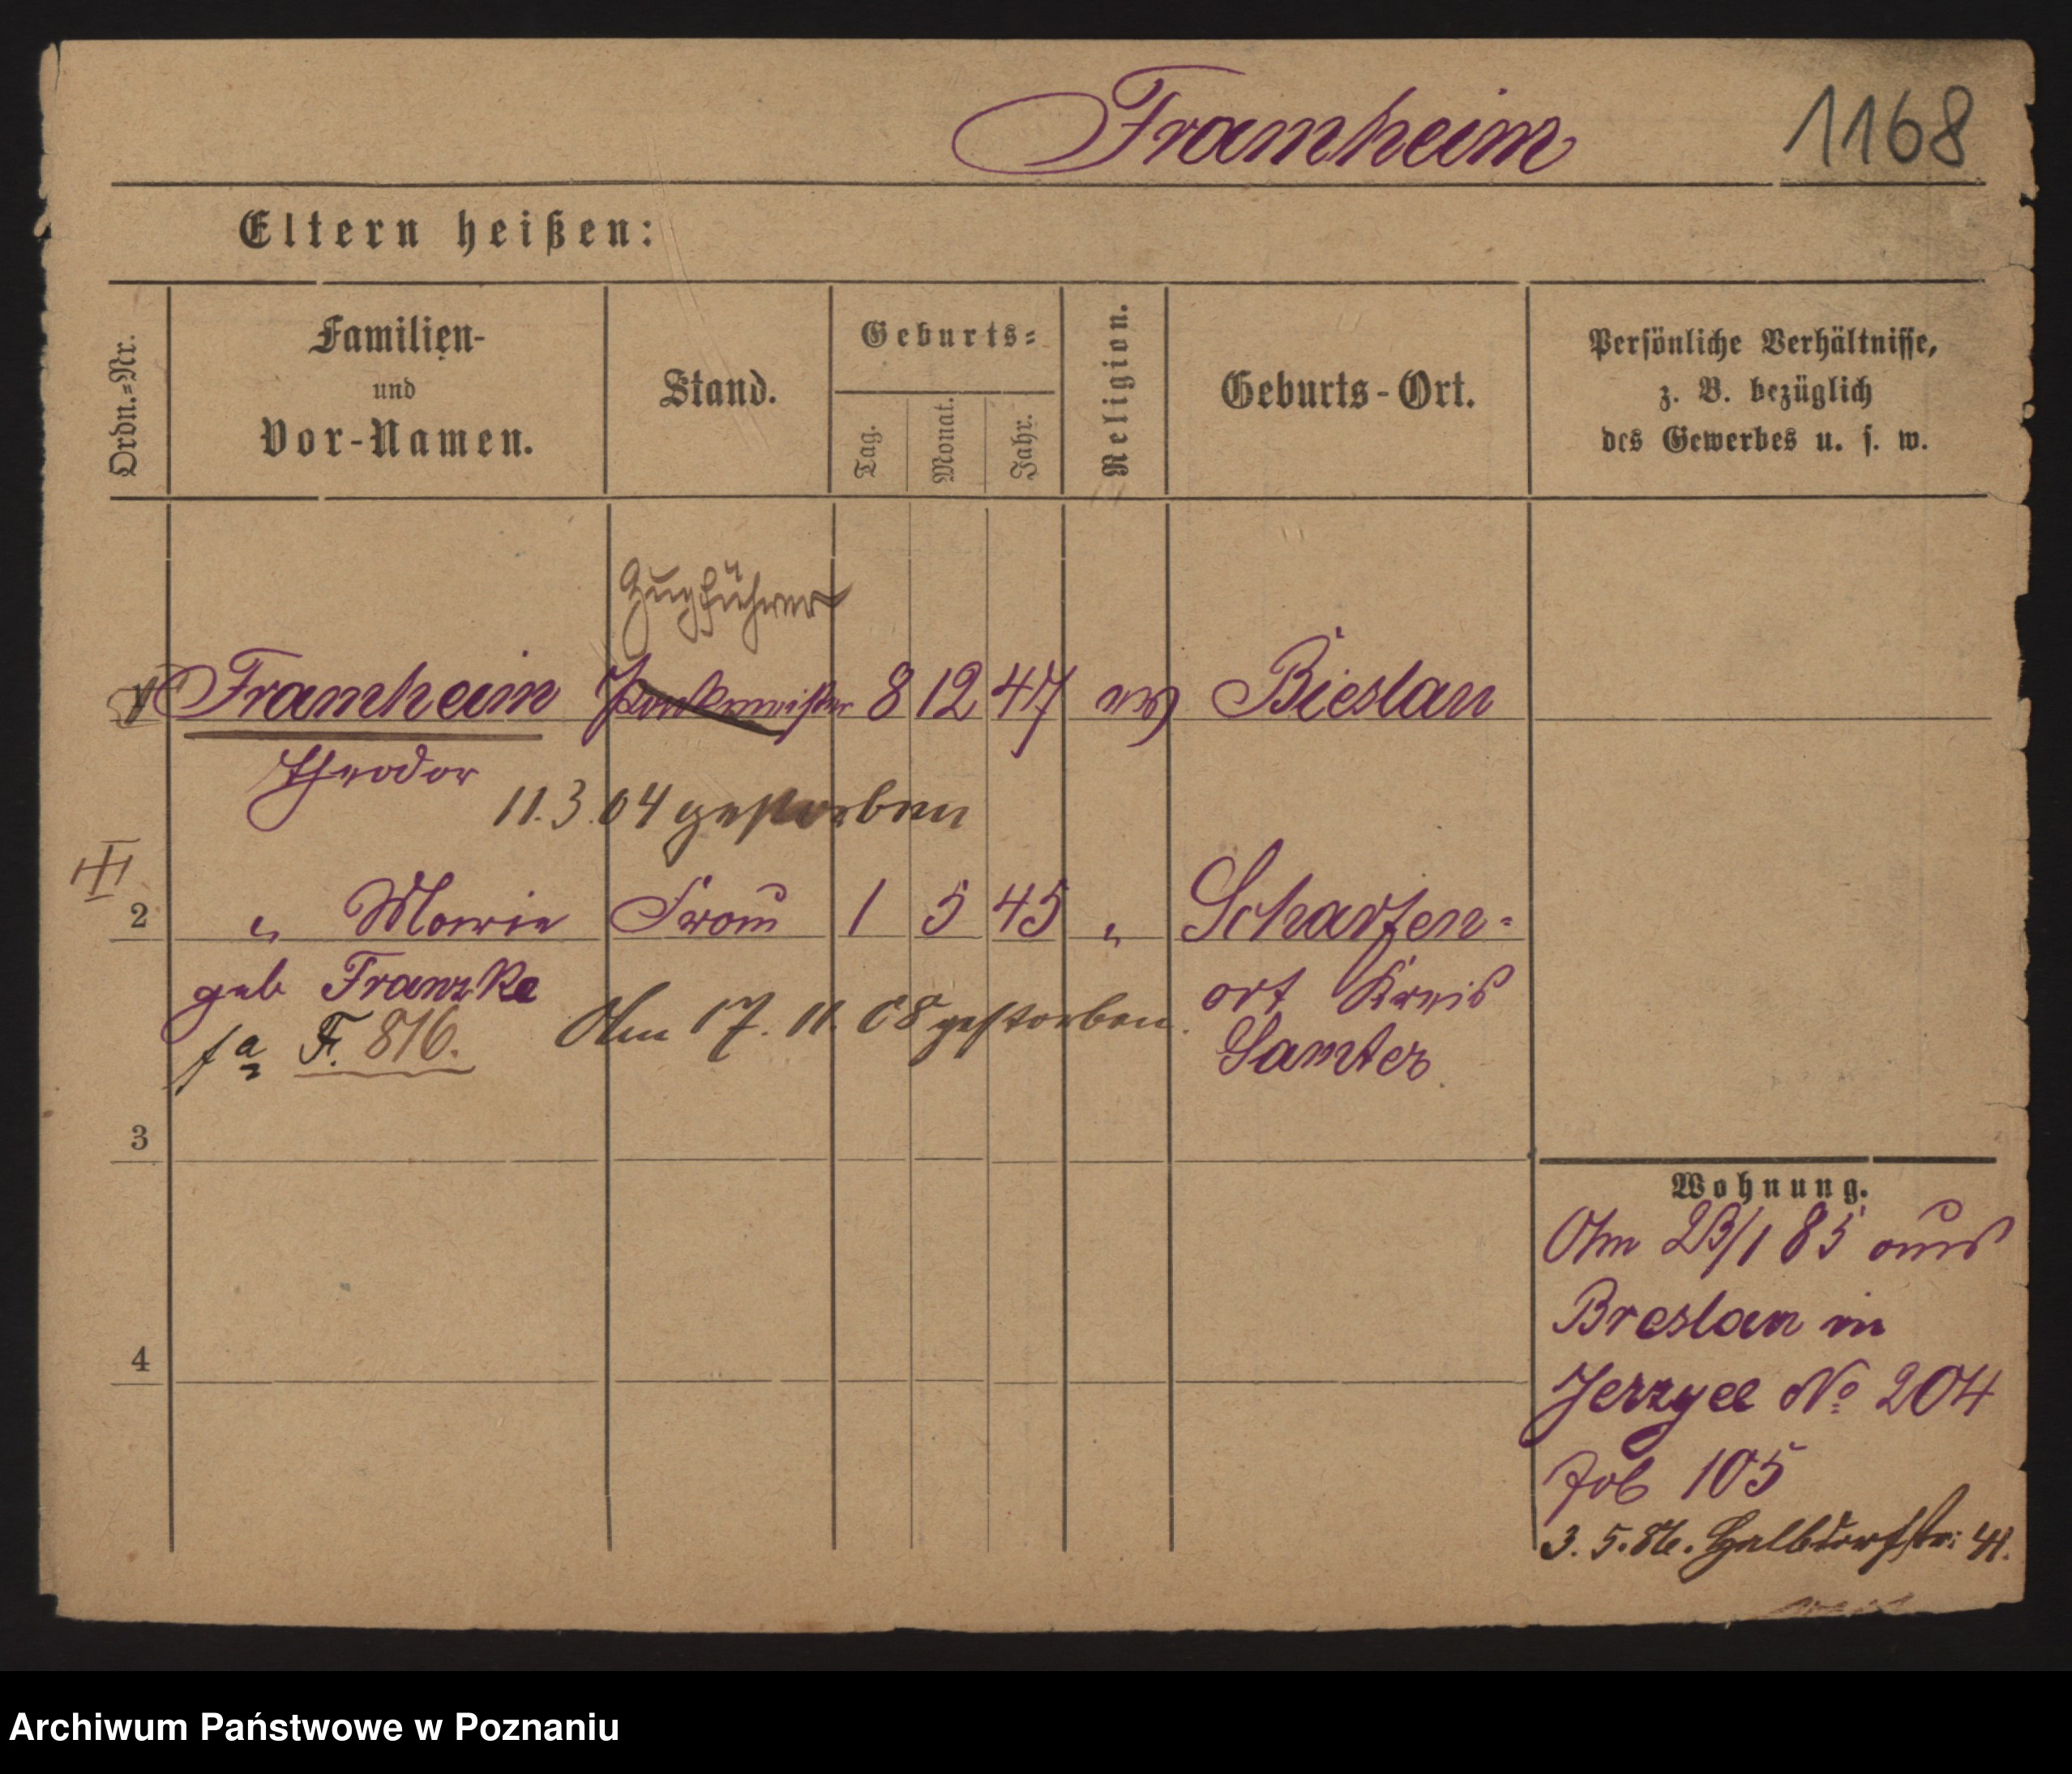 Framheim 1168
Eltern heißen:
Ordn.=Nr.
Familien-
und
Vor-Namen.
Stand.
Geburts=
Tag.
Monat.
Jahr.
Religion.
Geburts-Ort.
Persönliche Verhältnisse,
z. B. bezüglich
des Gewerbes u. s. w.
Zugführer
1 Framheim Packmeister 8 12 47 ev Breslau
Theodor
11.3.04 gestorben
2 " Marie Frau 1 5 45 " Scharfen-
geb Franzke ort Kreis
Am 17. 11. 08 gestorben.
fa F. 816. Samter
3
4
Wohnung.
Am 23/1 85 aus
Breslau in
Jerzyce No 204
Job 105
3. 5. 86. Halbdorfstr: 41.
Archiwum Państwowe w Poznaniu